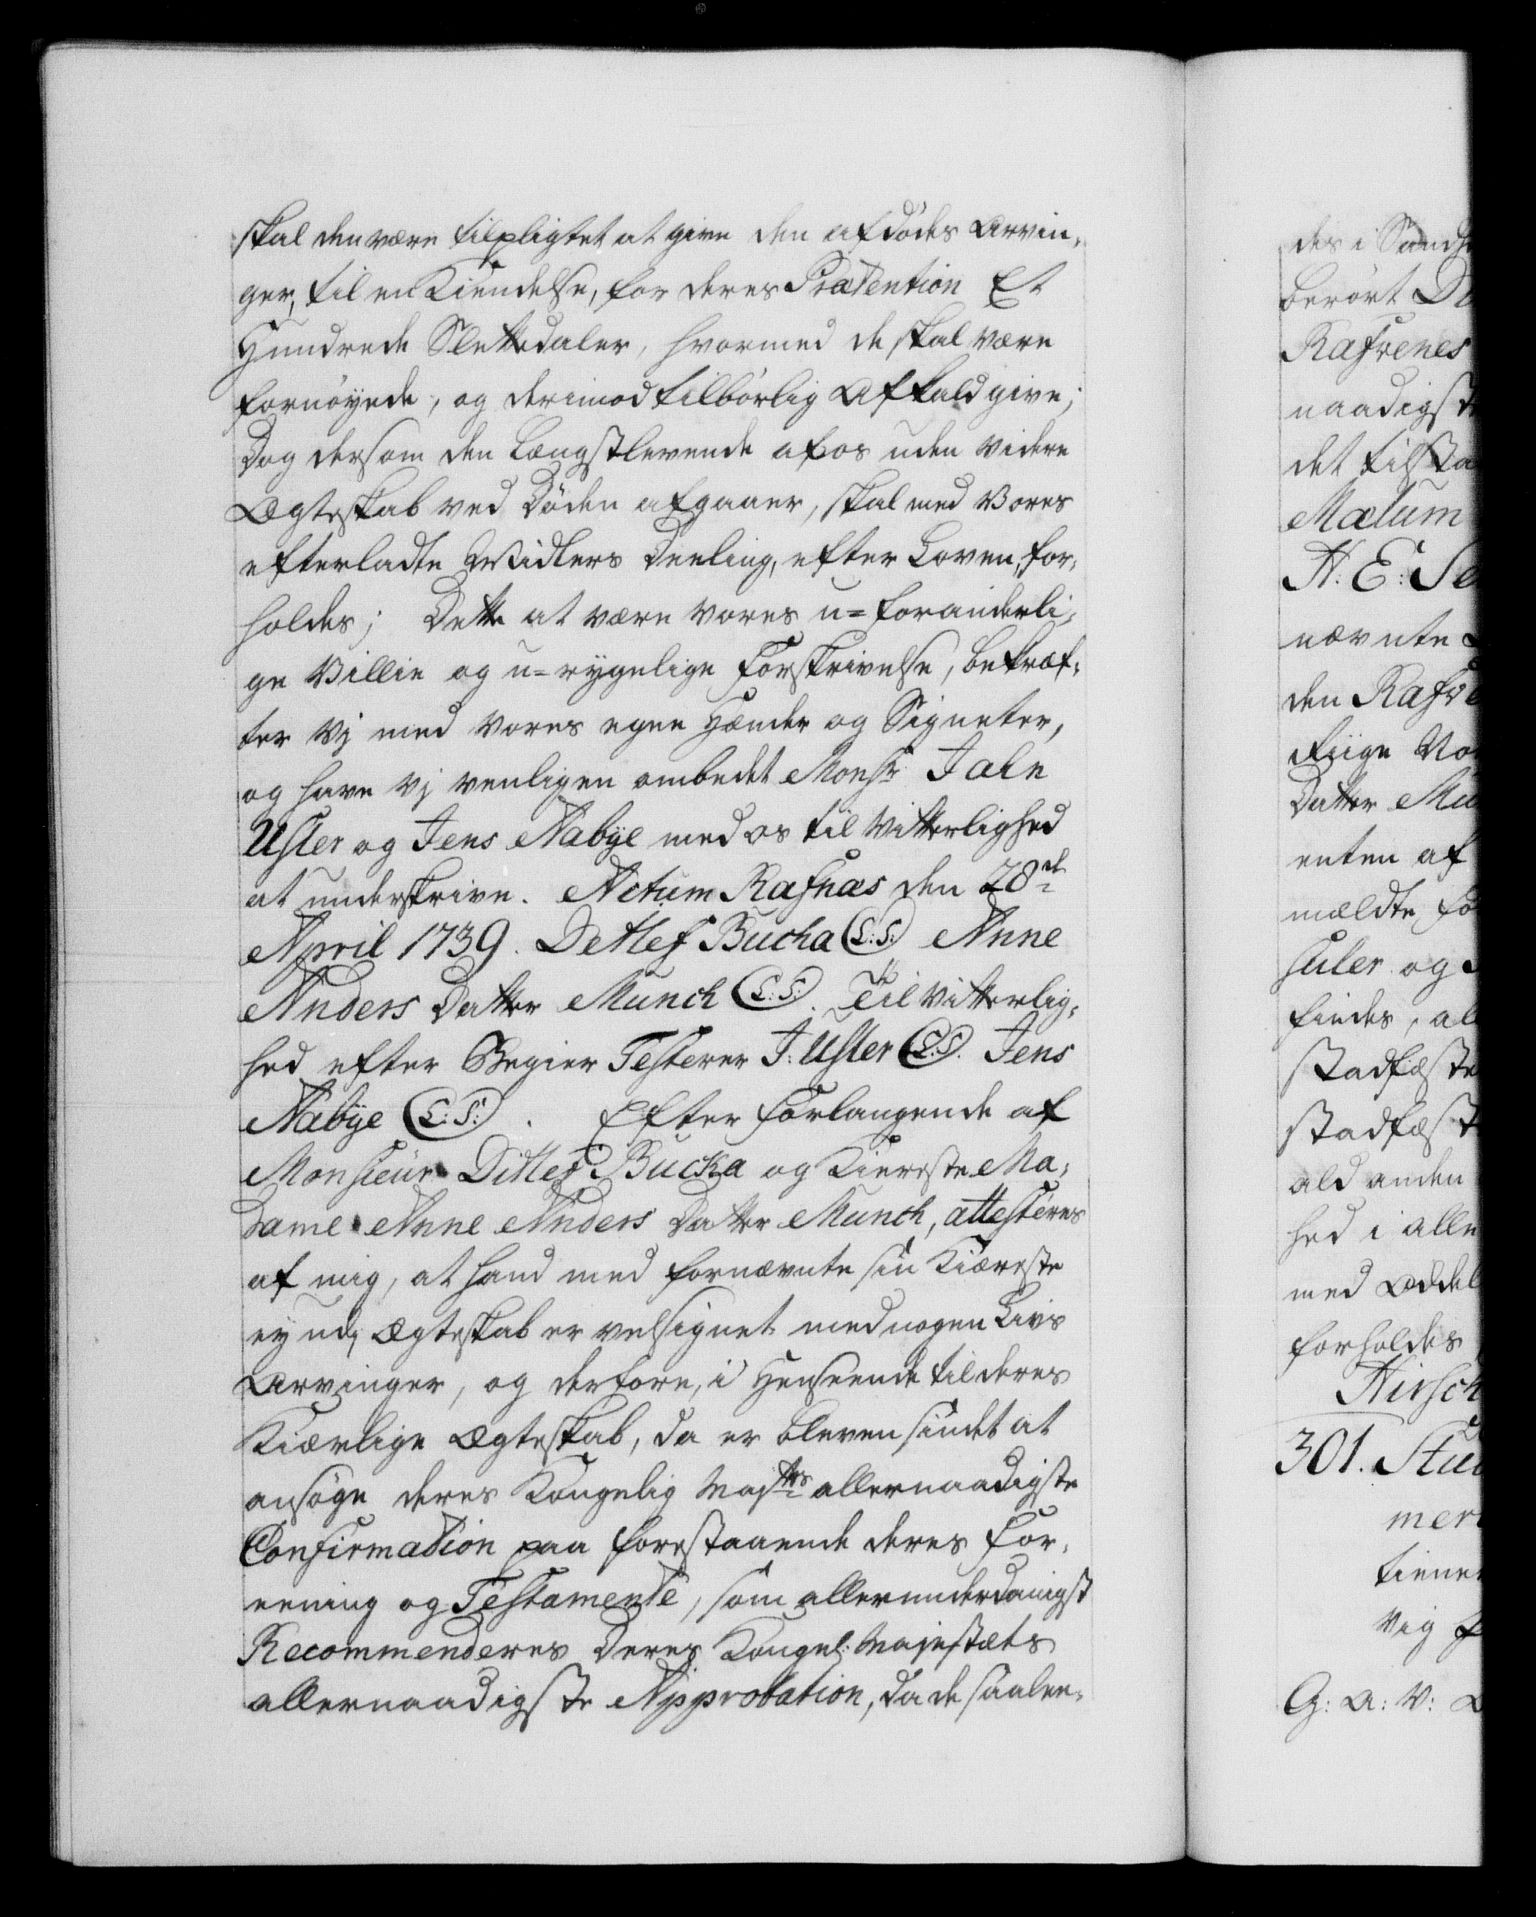 skal den være tilpligtet at give den afdødes Arvin,
ger, til en Kiendelse, for deres Prætention Et
Hundrede Slettedaler, hvormed de skal være
fornøyede, og derimod tilbørlig Afkald give;
Dog dersom den Længstlevende af os uden videre
Ægteskab ved Døden afgaaer, skal med Vores
efterladte Midlers Deeling, efter Loven, for,
holdes; Dette at være vores u=foranderli,
ge Villie og u=rygelige Forskrivelse, bekræf,
ter vj med vores egne Hænder og Signeter,
og have vj venligen ombedet Monsr Jale
Usler og Jens Nabÿe med os til Vitterlighed
at underskrive. Actum Rafnæs den 28de
April 1739. Detlef Bucha (L.S.) Anne
Anders Datter Munch (L:S:). Til Vitterlig,
hed efter Begier Testerer J: Usler (L.S). Jens
Nabÿe (L:S:). Efter Forlangende af
Monsieur Ditlef Bucka og Kiereste Ma,
dame Anne Anders Datter Munch, attesteres
af mig, at hand med fornævnte sin Kiæreste
ey udj Ægteskab er velsignet med nogen Livs
Arvinger, og derfore, i Henseende til deres
Kiærlige Ægteskab, da er bleven sindet at
ansøge deres Kongelig Maysts allernaadigste
Confirmation paa forestaaende deres For,
eening og Testamente, som allerunderdanigst
Recommenderes Deres Kongel: Majestæts
allernaadigste Approbation, da de saalee,
des i Sandh
berørt
Rafrenes
naadigst
det tilsta
Mælum
H: E: Se
nævnte
den Rafre
liige
Datter Mu
enten af
mældte, fo
suler og
findes, al
stadfæste
stadfæst
ald anden
hed i alle
med
forholdes
Hirsch
301. Stu
mer
tiene
vig f
G: A: V: